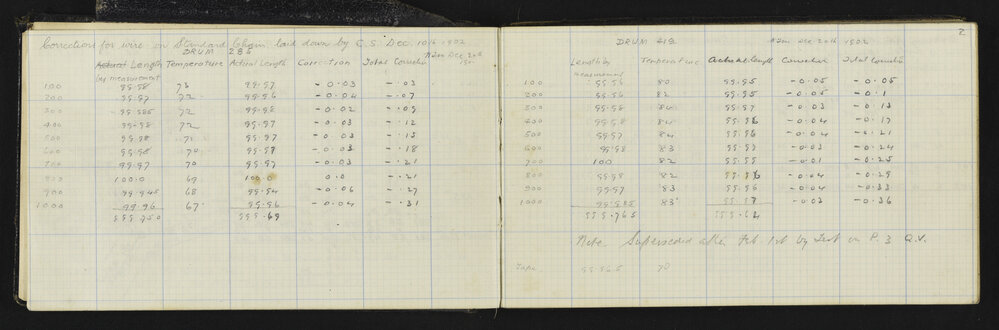 Correction for wire on Standard Chain laid down by C.S. Dec 10th 1902
DRUM 285
Actual Length Temperature Actual Length Correction Total Correction
by measurement
100 99.98 73 99.97 -0.03 -.03
200 99.97 72 99.96 -0.04 -.07
300 99.985 72 99.98 -0.02 -.09
400 99.98 72 99.97 -0.03 -.12
500 99.98 99.97 -0.03 -.15
600 99.98 70 99.97 -0.03 -.18
700 99.97 70 99.97 -0.03 -.21
800 100.0 69 100.0 0.0 -.21
900 99.945 68 99.94 -0.06 -.27
1000 99.96 67 99.96 -0.04 -.31
999.69
2
DRUM 219 Dec 20th 1902
Length by Temperature Actual length Correction Total Correction
measurement
100 99.96 80 99.95 -0.05 -0.05
200 99.96 82 99.95 -0.05 -0.1
300 99.98 84 99.97 -0.03 -0.13
400 99.98 84 99.96 -0.04 -0.17
500 99.97 84 99.96 -0.04 -0.21
600 99.98 83 99.97 -0.03 -0.24
700 100 82 99.99 -0.01 -0.25
800 99.98 82 99.96 -0.04 -0.29
900 99.97 83 99.96 -0.04 -0.33
1000 99.985 83 99.97 -0.03 -0.36
999.765 999.64
Note Superseded after Feb 1st by Test on P. 3 Q.V.
Tape. 99.965 70